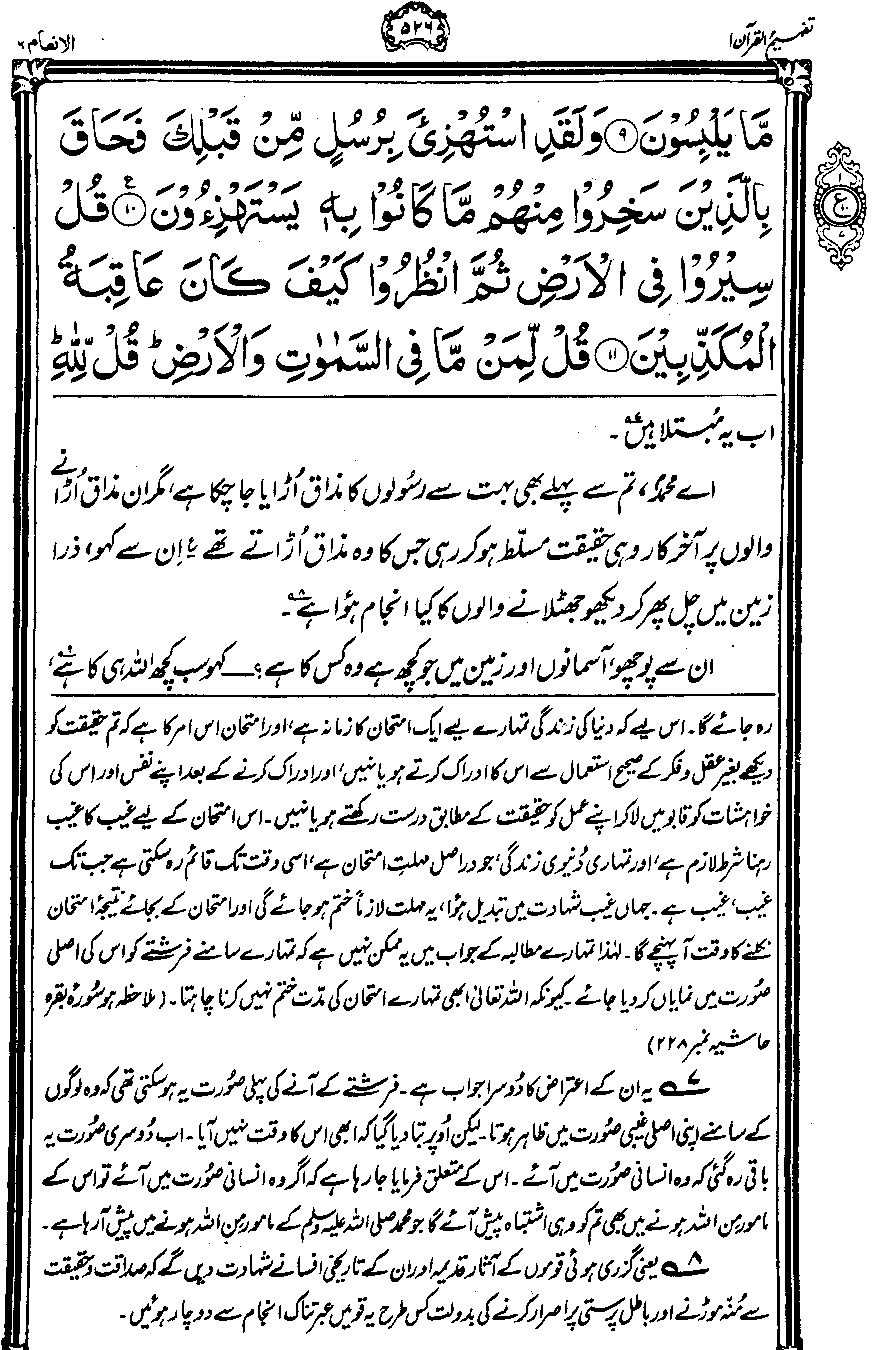 تفہیم القرآن ۱
۵۲۶
الانعام ۶
مَّا يَلْبِسُوْنَ ۹ وَلَقَدِ اسْتُهْزِئَ بِرُسُلٍ مِّنْ قَبْلِكَ فَحَاقَ
بِالَّذِيْنَ سَخِرُوْا مِنْهُمْ مَّا كَانُوْا بِهٖ يَسْتَهْزِءُوْنَ ۱۰ ع قُلْ
سِيْرُوْا فِى الْاَرْضِ ثُمَّ انْظُرُوْا كَيْفَ كَانَ عَاقِبَةُ
الْمُكَذِّبِيْنَ ۱۱ قُلْ لِّمَنْ مَّا فِى السَّمٰوٰتِ وَالْاَرْضِ ط قُلْ لِّلّٰهِ ط
۱
ع
۷
اب یہ مُبتلا ہیں۔
اے محمدؐ، تم سے پہلے بھی بہت سے رسُولوں کا مذاق اُڑایا جا چکا ہے، مگر ان مذاق اُڑانے
والوں پر آخر کار وہی حقیقت مسلّط ہو کر رہی جس کا وہ مذاق اُڑاتے تھے ع اِن سے کہو، ذرا
زمین میں چل پھر کر دیکھو جھٹلانے والوں کا کیا انجام ہُوا ہے ۸۔
ان سے پوچھو، آسمانوں اور زمین میں جو کچھ ہے وہ کس کا ہے؟ — کہو سب کچھ اللہ ہی کا ہے ۹،
رہ جائے گا۔ اس لیے کہ دنیا کی زندگی تمہارے لیے ایک امتحان کا زمانہ ہے، اور امتحان اس امر کا ہے کہ تم حقیقت کو
دیکھے بغیر عقل و فکر کے صحیح استعمال سے اس کا ادراک کرتے ہو یا نہیں، اور ادراک کرنے کے بعد اپنے نفس اور اس کی
خواہشات کو قابو میں لا کر اپنے عمل کو حقیقت کے مطابق درست رکھتے ہو یا نہیں۔ اس امتحان کے لیے غیب کا غیب
رہنا شرط لازم ہے، اور تمہاری دُنیوی زندگی، جو دراصل مہلتِ امتحان ہے، اسی وقت تک قائم رہ سکتی ہے جب تک
غیب، غیب ہے۔ جہاں غیب شہادت میں تبدیل ہُوا، یہ مہلت لازماً ختم ہو جائے گی اور امتحان کے بجائے نتیجۂ امتحان
نکلنے کا وقت آ پہنچے گا۔ لہٰذا تمہارے مطالبہ کے جواب میں یہ ممکن نہیں ہے کہ تمہارے سامنے فرشتے کو اس کی اصلی
صُورت میں نمایاں کر دیا جائے۔ کیونکہ اللہ تعالیٰ ابھی تمہارے امتحان کی مدّت ختم نہیں کرنا چاہتا۔ (ملاحظہ ہو سُورۂ بقرہ
حاشیہ نمبر ۲۲۸)
۷ یہ ان کے اعتراض کا دُوسرا جواب ہے۔ فرشتے کے آنے کی پہلی صُورت یہ ہو سکتی تھی کہ وہ لوگوں
کے سامنے اپنی اصلی غیبی صُورت میں ظاہر ہوتا۔ لیکن اُوپر بتا دیا گیا کہ ابھی اس کا وقت نہیں آیا۔ اب دُوسری صُورت یہ
باقی رہ گئی کہ وہ انسانی صُورت میں آئے۔ اس کے متعلق فرمایا جا رہا ہے کہ اگر وہ انسانی صُورت میں آئے تو اس کے
مامور من اللہ ہونے میں بھی تم کو وہی اشتباہ پیش آئے گا جو محمد صلی اللہ علیہ وسلم کے مامور من اللہ ہونے میں پیش آ رہا ہے۔
۸ یعنی گزری ہوئی قوموں کے آثارِ قدیمہ اور ان کے تاریخی افسانے شہادت دیں گے کہ صداقت و حقیقت
سے مُنہ موڑنے اور باطل پرستی پر اصرار کرنے کی بدولت کس طرح یہ قومیں عبرتناک انجام سے دوچار ہوئیں۔